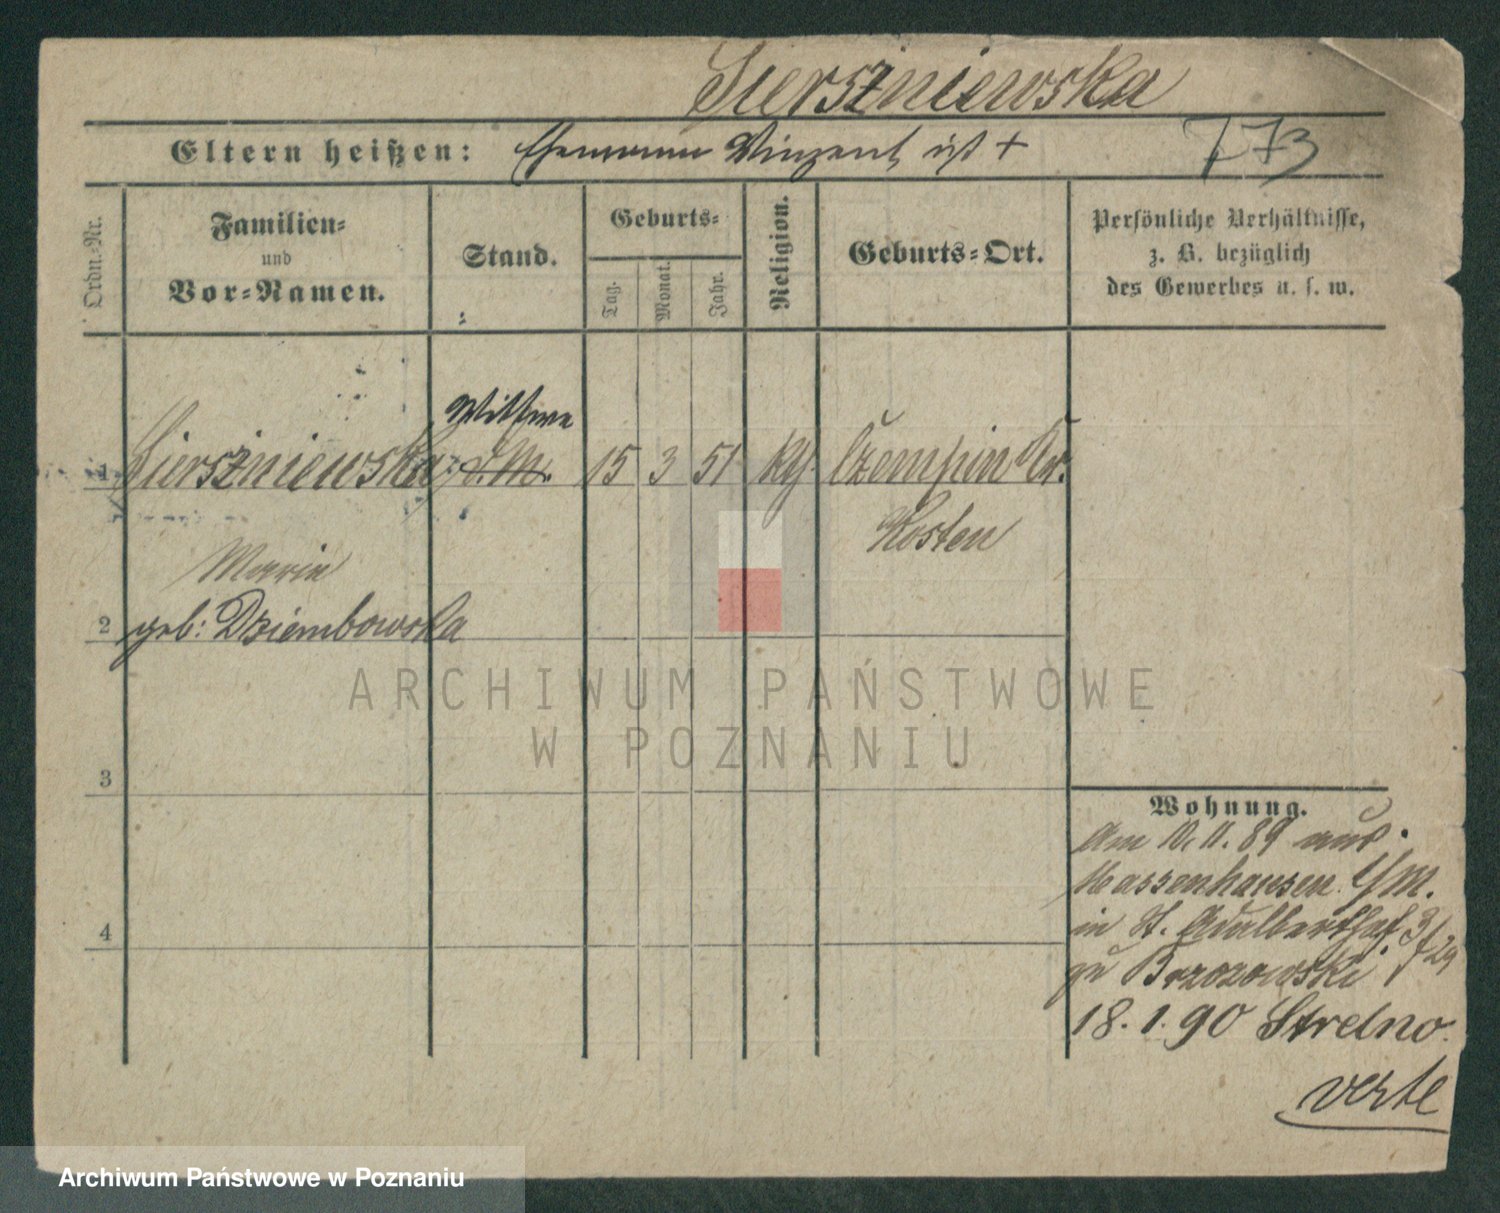 Sierszniewska
Eltern heißen: Ehemann Vinzent ist +
773
Ordn.-Nr.
Familien-
und
Vor-Namen.
Stand.
Geburts-
Tag. Monat. Jahr.
Religion.
Geburts-Ort.
Persönliche Verhältnisse,
z. B. bezüglich
des Gewerbes u. s. w.
Wittwe
1 Sierszniewska d. M. 15 3 51 Kth. Czempin Kr.
Kosten
Marie
2 geb: Dziembowska
ARCHIWUM PAŃSTWOWE
W POZNANIU
3
Wohnung.
Am 10. 11. 89 aus
Hassenhausen
4
in St. Adalberthstr. 3/29
zu Brzozowski
18. 1. 90 Strelno.
verte
Archiwum Państwowe w Poznaniu